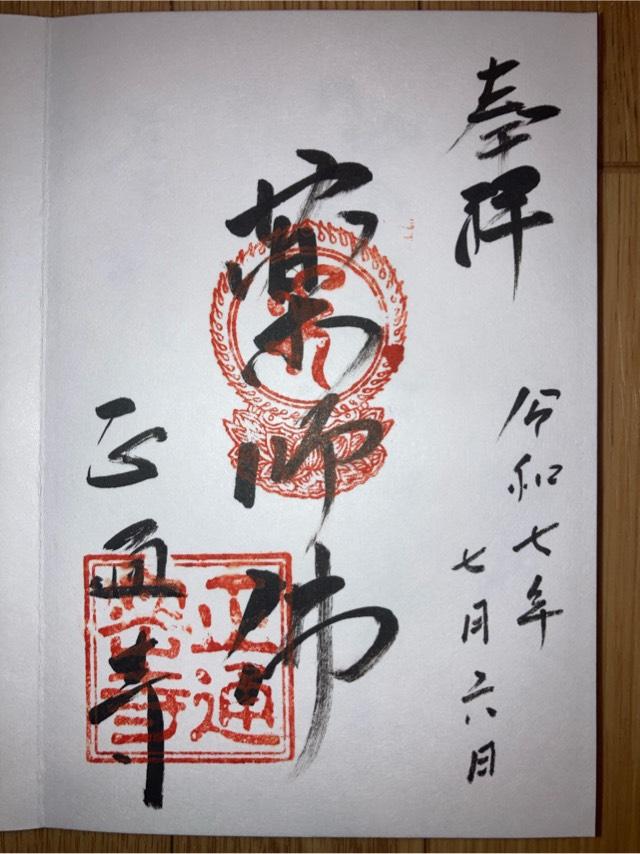 奉拝
令和七年
七月六日
薬師佛
正通寺
正通
寺